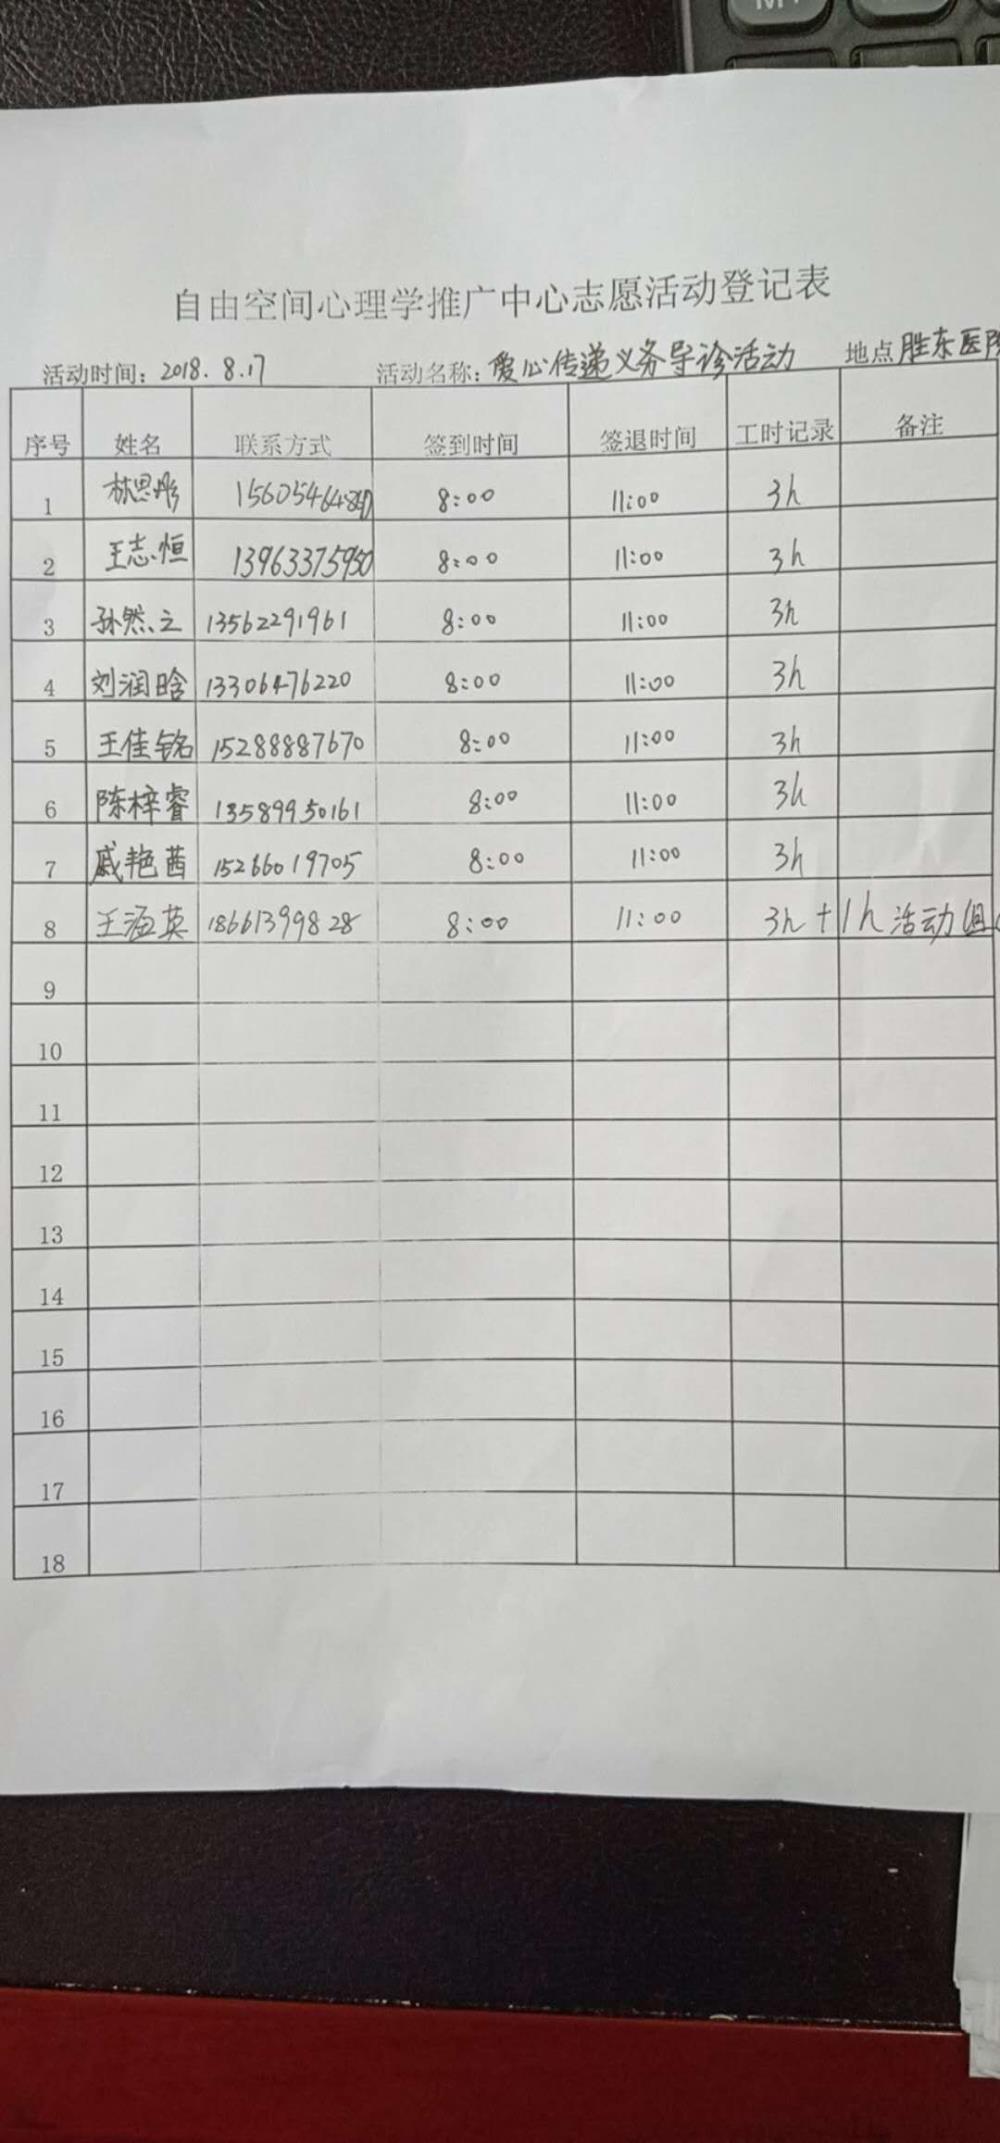 自由空间心理学推广中心志愿活动登记表
活动时间：2018.8.17 活动名称：爱心传递义务导诊活动 地点 胜东医院
序号 姓名 联系方式 签到时间 签退时间 工时记录 备注
1 林思彤 8:00 11:00 3h
2 王志恒 13963375950 8:00 11:00 3h
3 孙然之 13562291961 8:00 11:00 3h
4 刘润晗 13306476220 8:00 11:00 3h
5 王佳铭 15288887670 8:00 11:00 3h
6 陈梓睿 13589950161 8:00 11:00 3h
7 戚艳茜 15266019705 8:00 11:00 3h
8 王涵英 18661399828 8:00 11:00 3h+1h 活动组
9
10
11
12
13
14
15
16
17
18